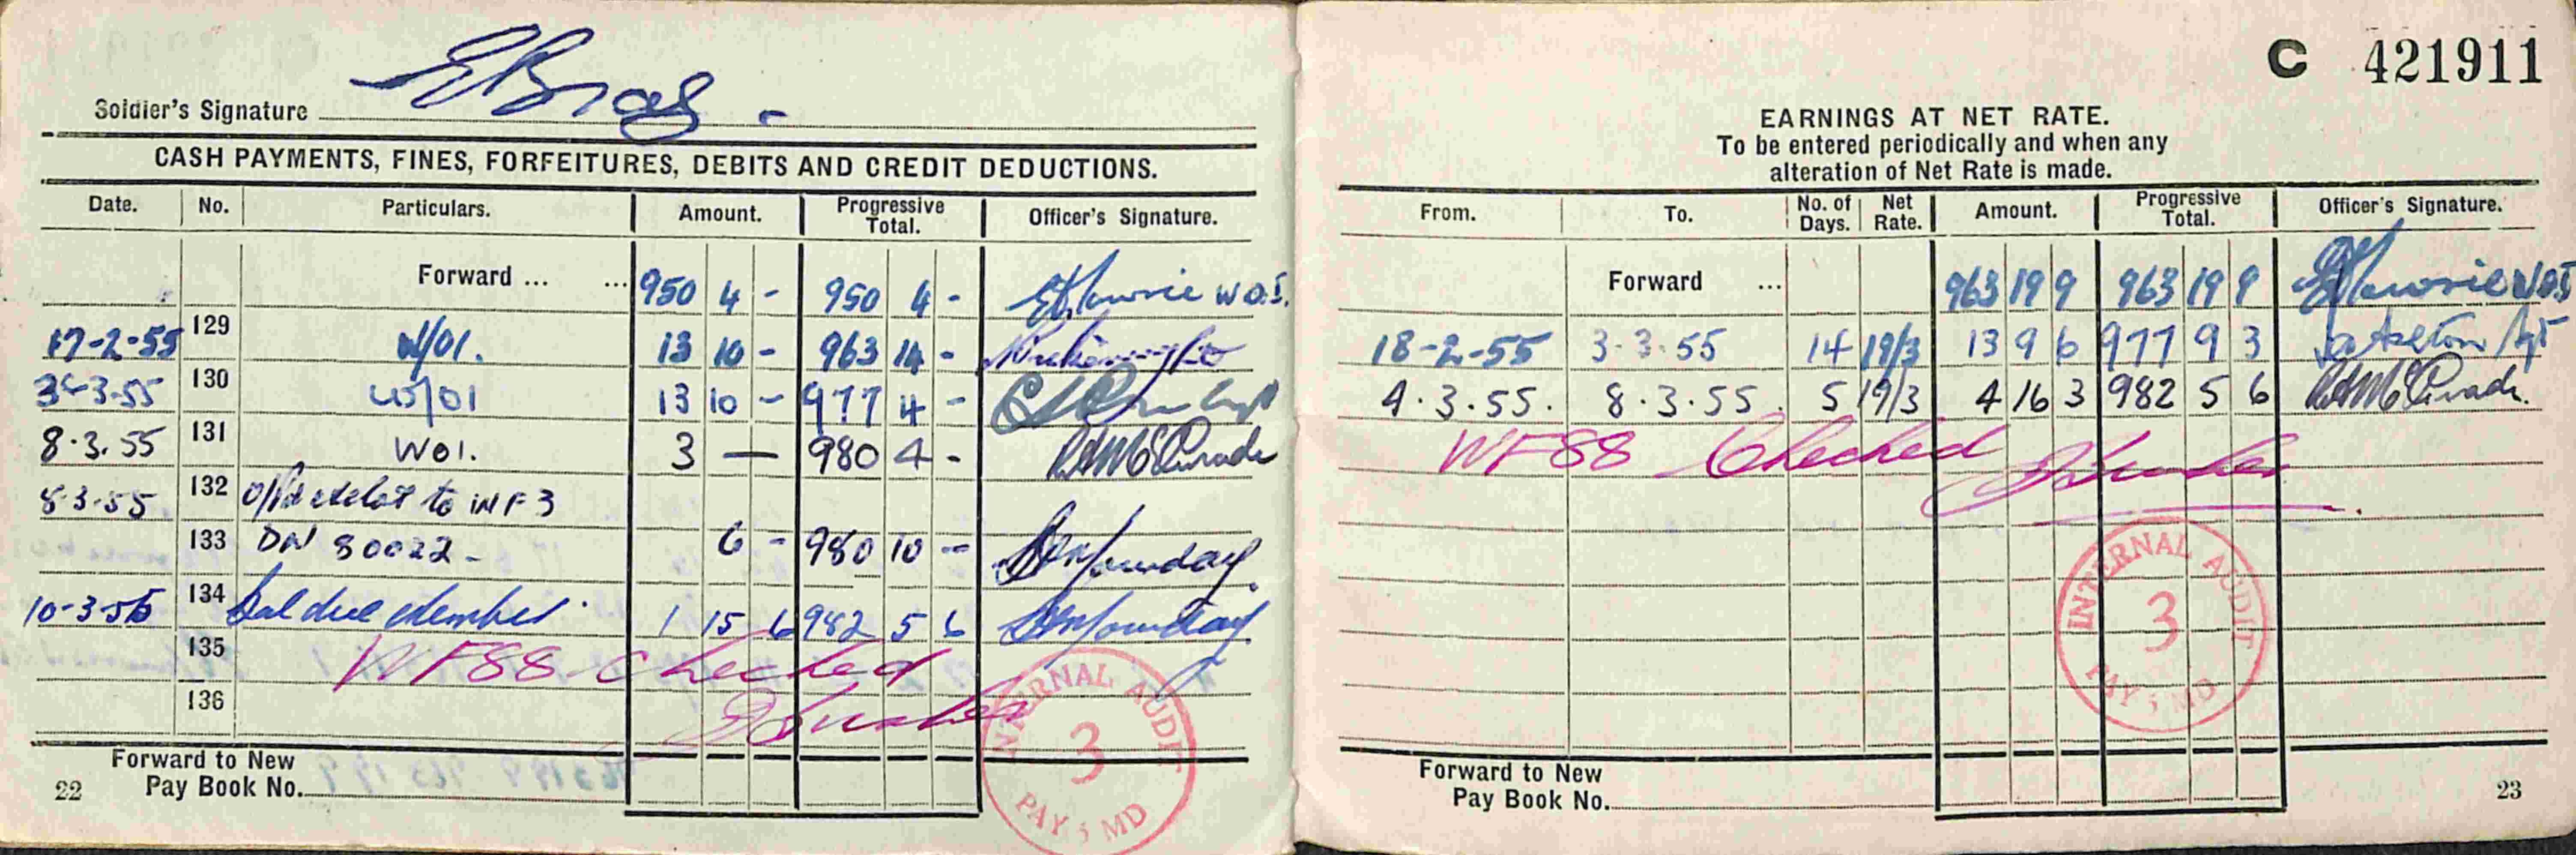 Soldier's Signature
CASH PAYMENTS, FINES, FORFEITURES, DEBITS AND CREDIT DEDUCTIONS.
Date. No. Particulars. Amount. Progressive Total. Officer's Signature.
Forward ... ... 950 4 - 950 4 - W O.I.
17-2-55 129 W/O1. 13 10 - 963 14 -
3-3-55 130 W/O1 13 10 - 977 4 - Capt
8.3.55 131 WO1. 3 — 980 4 -
8-3-55 132 to WF3
133 DN 80022 - 6 - 980 10 -
10-3-55 134 Bal due member 1 15 6 982 5 6
135 WF88 Checked
136
Forward to New
Pay Book No.
22
INTERNAL AUDIT
3
PAY 3 MD
C 421911
EARNINGS AT NET RATE.
To be entered periodically and when any
alteration of Net Rate is made.
From. To. No. of Days. Net Rate. Amount. Progressive Total. Officer's Signature.
Forward ... 963 19 9 963 19 9 W.O.I
18-2-55 3-3-55 14 19/3 13 9 6 977 9 3
4.3.55. 8.3.55. 5 19/3 4 16 3 982 5 6
WF88 Checked
INTERNAL AUDIT
3
PAY 3 MD
Forward to New
Pay Book No.
23